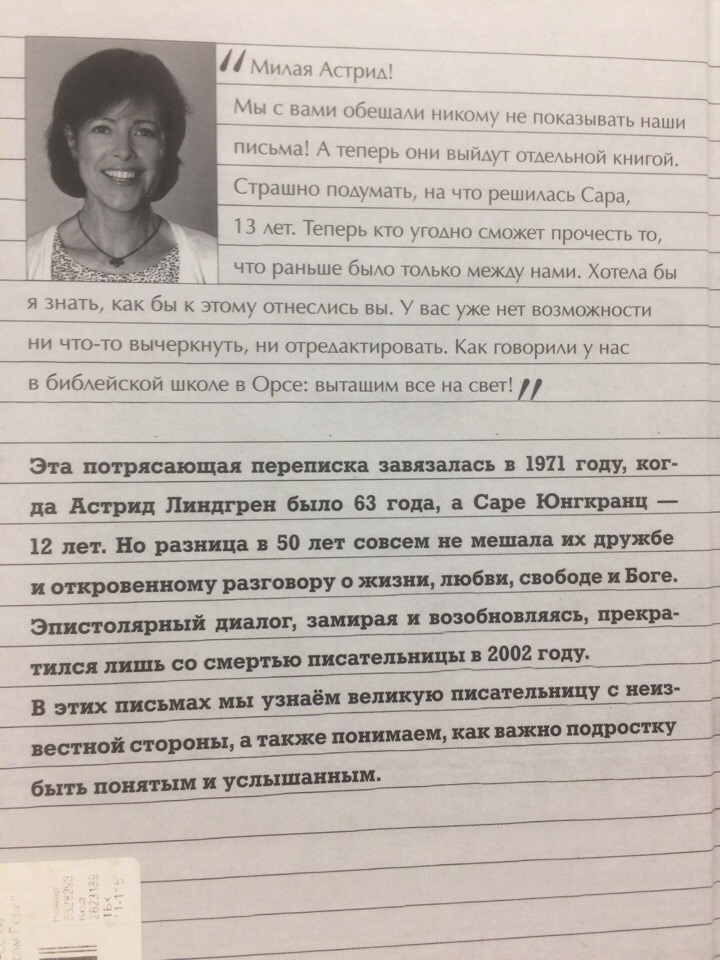 " Милая Астрид!
Мы с вами обещали никому не показывать наши
письма! А теперь они выйдут отдельной книгой.
Страшно подумать, на что решилась Сара,
13 лет. Теперь кто угодно сможет прочесть то,
что раньше было только между нами. Хотела бы
я знать, как бы к этому отнеслись вы. У вас уже нет возможности
ни что-то вычеркнуть, ни отредактировать. Как говорили у нас
в библейской школе в Орсе: вытащим все на свет! "
Эта потрясающая переписка завязалась в 1971 году, ког-
да Астрид Линдгрен было 63 года, а Саре Юнгкранц —
12 лет. Но разница в 50 лет совсем не мешала их дружбе
и откровенному разговору о жизни, любви, свободе и Боге.
Эпистолярный диалог, замирая и возобновляясь, прекра-
тился лишь со смертью писательницы в 2002 году.
В этих письмах мы узнаём великую писательницу с неиз-
вестной стороны, а также понимаем, как важно подростку
быть понятым и услышанным.
Номер
Код
2623189
ТБК